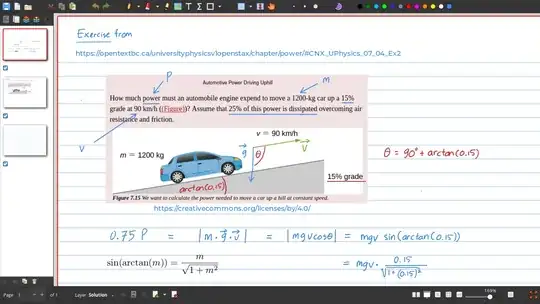 Exercise from
https://opentextbc.ca/universityphysicsv1openstax/chapter/power/#CNX_UPhysics_07_04_Ex2
P
m
Automotive Power Driving Uphill
How much power must an automobile engine expend to move a 1200-kg car up a 15%
grade at 90 km/h ((Figure))? Assume that 25% of this power is dissipated overcoming air
resistance and friction.
v
v = 90 km/h
m = 1200 kg
g
θ
v
θ = 90° + arctan(0.15)
arctan(0.15)
15% grade
Figure 7.15 We want to calculate the power needed to move a car up a hill at constant speed.
https://creativecommons.org/licenses/by/4.0/
0.75 P = |m·g·v| = |mgvcosθ| = mgv sin(arctan(0.15))
sin(arctan(m)) = m / √1 + m²
= mgv · 0.15 / √1+(0.15)²
Layer: Solution
159%